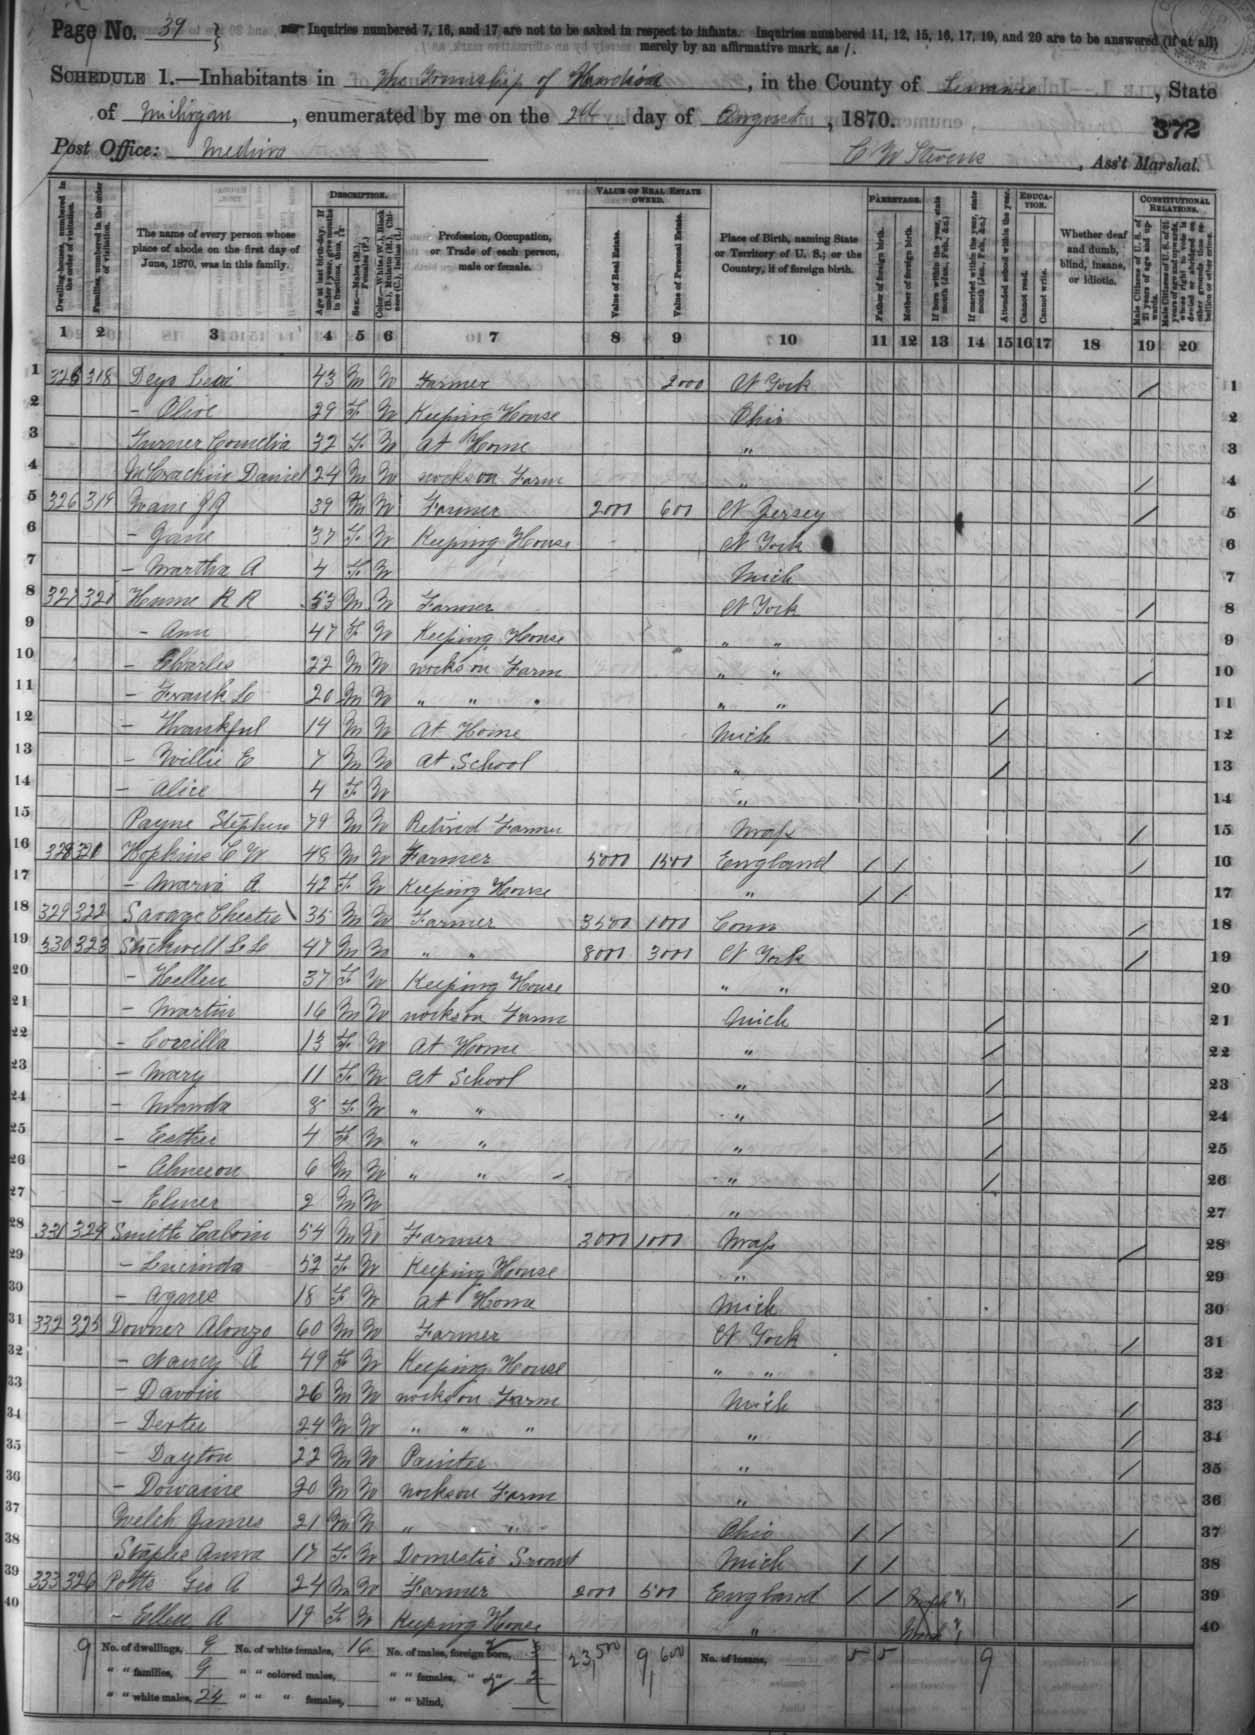 Page No. 39
Inquiries numbered 7, 16, and 17 are not to be asked in respect to infants. Inquiries numbered 11, 12, 15, 16, 17, 19, and 20 are to be answered (if at all) merely by an affirmative mark, as /.
SCHEDULE 1.—Inhabitants in The Township of, in the County of, State
of Michigan, enumerated by me on the day of August, 1870.
372
Post Office: Medina
C W Stevens, Ass't Marshal.
Dwelling-houses, numbered in the order of visitation.
Families, numbered in the order of visitation.
The name of every person whose place of abode on the first day of June, 1870, was in this family.
DESCRIPTION.
Age at last birth-day. If under 1 year, give months in fractions, thus,
Sex.—Males (M.), Females (F.)
Color.—White (W.), Black (B.), Mulatto (M.), Chinese (C.), Indian (I.)
Profession, Occupation, or Trade of each person, male or female.
VALUE OF REAL ESTATE OWNED.
Value of Real Estate.
Value of Personal Estate.
Place of Birth, naming State or Territory of U. S.; or the Country, if of foreign birth.
PARENTAGE.
Father of foreign birth.
Mother of foreign birth.
If born within the year, state month (Jan., Feb., &c.)
If married within the year, state month (Jan., Feb., &c.)
Attended school within the year.
EDUCATION.
Cannot read.
Cannot write.
Whether deaf and dumb, blind, insane, or idiotic.
CONSTITUTIONAL RELATIONS.
Male Citizens of U. S. of 21 years of age and upwards.
Male Citizens of U. S. of 21 years of age and upwards, whose right to vote is denied or abridged on other grounds than rebellion or other crime.
1 2 3 4 5 6 7 8 9 10 11 12 13 14 15 16 17 18 19 20
1 318 Deyo Levi 43 M W Farmer 2000 N York / 1
2 – Olive 29 F W Keeping House Ohio 2
3 Turner Cornelia 32 F W At Home " 3
4 McCrackin Daniel 24 M W works on Farm " / 4
5 326 319 39 M W Farmer 2000 600 N Jersey / 5
6 – Jane 37 F W Keeping House N York 6
7 – Martha A 4 F W Mich 7
8 327 320 Hume R R 53 M W Farmer N York / 8
9 – Ann 47 F W Keeping House " " 9
10 – Charles 22 M W works on Farm " " / 10
11 – Frank L 20 M W " " " " " / 11
12 – Thankful 14 M W At Home Mich / 12
13 – Willie E 7 M W At School " / 13
14 – Alice 4 F W " 14
15 Payne Stephen 79 M W Retired Farmer Mass / 15
16 328 Hopkins C W 48 M W Farmer 5000 1500 England / / / 16
17 – Maria A 42 F W Keeping House " / / 17
18 329 322 Savage Chester 35 M W Farmer 3500 1000 Conn / 18
19 330 323 Stockwell L L 47 M W " " 8000 3000 N York / 19
20 – Hellen 37 F W Keeping House " " 20
21 – Martin 16 M W works on Farm Mich / 21
22 – 13 F W At Home " / 22
23 – Mary 11 F W At School " / 23
24 – 8 F W " " " / 24
25 – Esther 4 F W " " " / 25
26 – Almeron 6 M W " " " / 26
27 – Elmer 2 M W " 27
28 331 324 Smith Calvin 54 M W Farmer 3000 1000 Mass / 28
29 – Lucinda 52 F W Keeping House " 29
30 – Agnes 18 F W At Home Mich 30
31 332 325 Downer Alonzo 60 M W Farmer N York / 31
32 – Nancy A 49 F W Keeping House " " 32
33 – 26 M W works on Farm Mich / 33
34 – Dexter 24 M W " " " " / 34
35 – Dayton 22 M W Painter " / 35
36 – Dowaine 20 M W works on Farm " 36
37 Welch James 21 M W " " Ohio / / / 37
38 Staples Anna 17 F W Domestic Servant Mich / / 38
39 333 326 Potts Geo A 24 M W Farmer 2000 500 England / / / 39
40 – Ellen A 19 F W Keeping House " 40
9 No. of dwellings, 9 No. of white females, 16 No. of males, foreign born, 23,500 9,600 No. of insane, 5 5 9
" " families, 9 " " colored males, " " females, " " 2
" " white males, 24 " " " females, " " blind,